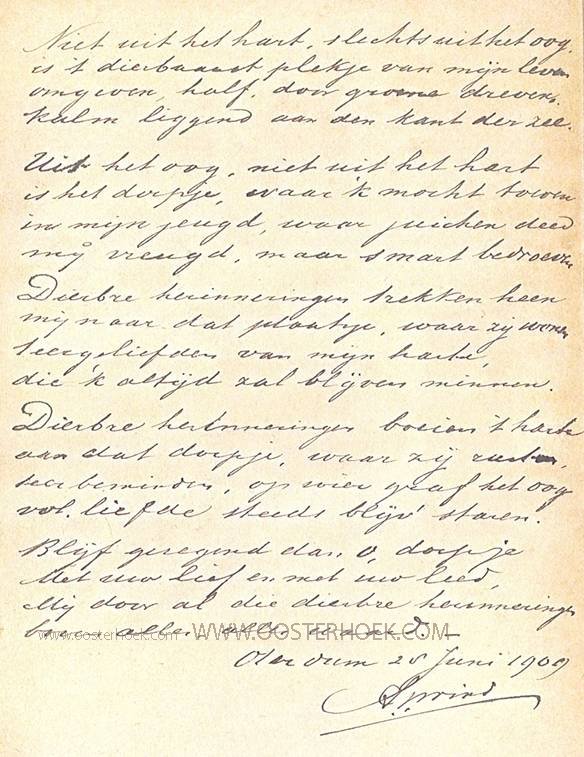 Niet uit het hart, slechts uit het oog,
is 't dierbaarst plekje van mijn leven
omgeven, half, door groene dreven,
kalm liggend aan den kant der zee.
Uit het oog, niet uit het hart
is het dorpje, waar 'k mocht toeven
in mijn jeugd, waar juichen deed
mij vreugd, maar smart bedroeven
Dierbre herinneringen trekken heen
mij naar dat plaatsje, waar zij wonen
teergeliefden van mijn harte,
die 'k altijd zal blijven minnen.
Dierbre herinneringen boeien 't harte
aan dat dorpje, waar zij rusten,
teer beminden, op wier graf het oog
vol liefde steeds blijv' staren.
Blijf gezegend dan, o, dorpje
Met uw lief en met uw leed,
Mij door al die dierbre herinneringen
boven alles
www.oosterhoek.com WWW.OOSTERHOEK.COM
28 Juni 1909